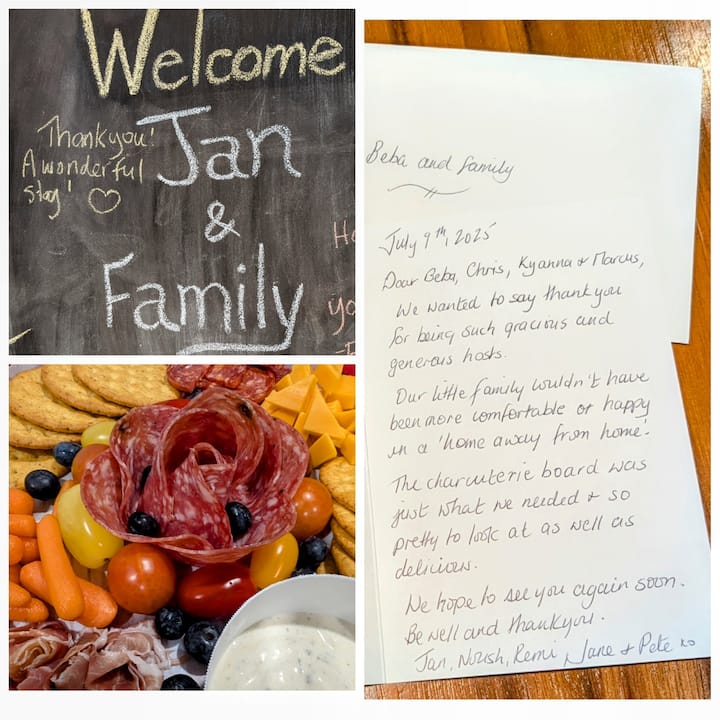 Welcome
Jan
&
Family
Thankyou!
A wonderful
stay!
Beba and family
July 9th, 2025
Dear Beba, Chris, Kyanna & Marcus,
We wanted to say thank you
for being such gracious and
generous hosts.
Our little family wouldn't have
been more comfortable or happy
in a 'home away from home'.
The charcuterie board was
just what we needed & so
pretty to look at as well as
delicious.
We hope to see you again soon.
Be well and thankyou.
Jan, Noush, Remi, Jane & Pete xo